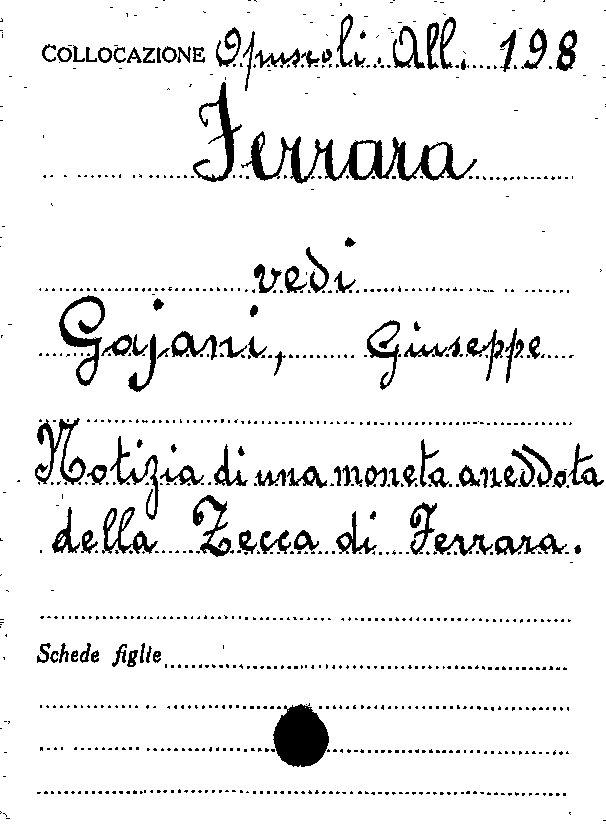 COLLOCAZIONE Opuscoli. All. 198
Ferrara
vedi
Gajani, Giuseppe
Notizia di una moneta aneddota
della Zecca di Ferrara.
Schede figlie